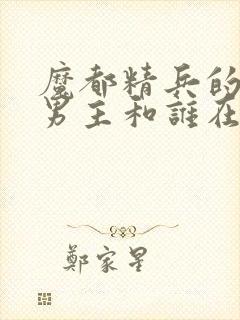 魔都精兵的
男主和誰在
鄭家星